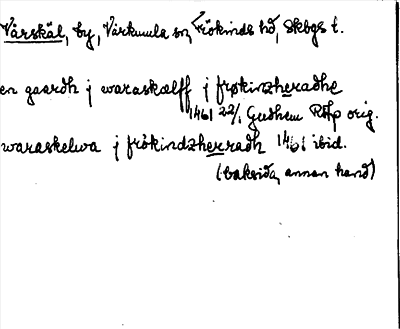 Vårskäl, by, Vårkumla sn, Frökinds hd, Skbgs l.
en gaardh j waraskælff j frøkinzheradhe
1461 22/1 Gudhem RAp orig.
waraskelwa j frökindzherradh 1461 ibid.
(baksida, annan hand)